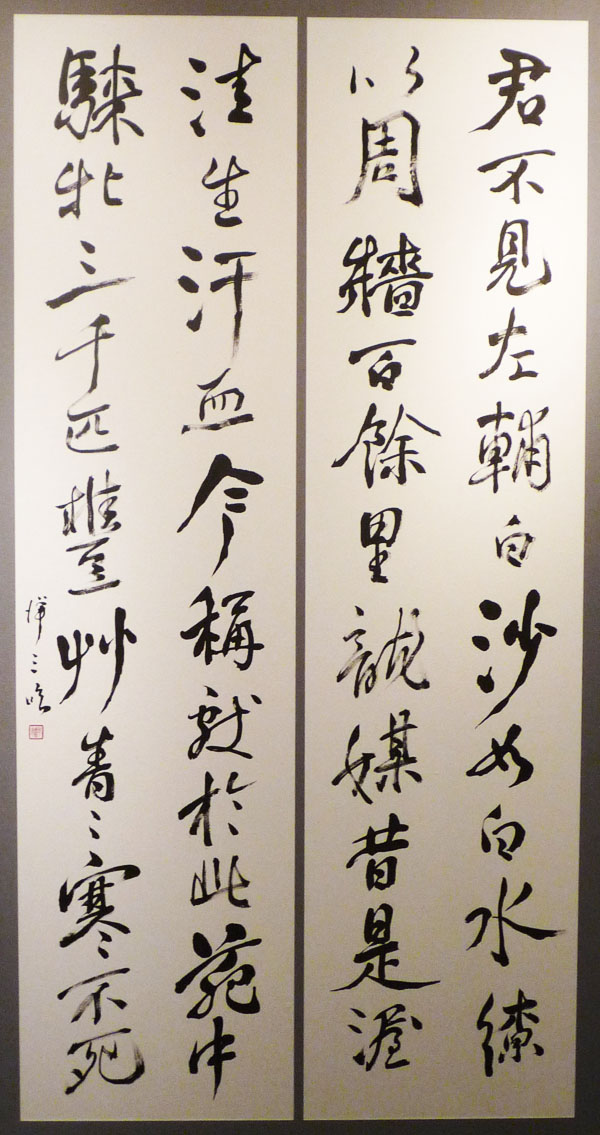 君不見左輔白沙如白水繚
以周牆百餘里龍媒昔是渥
洼生汗血今稱献於此苑中
騋牝三千匹豐艸青〻寒不死